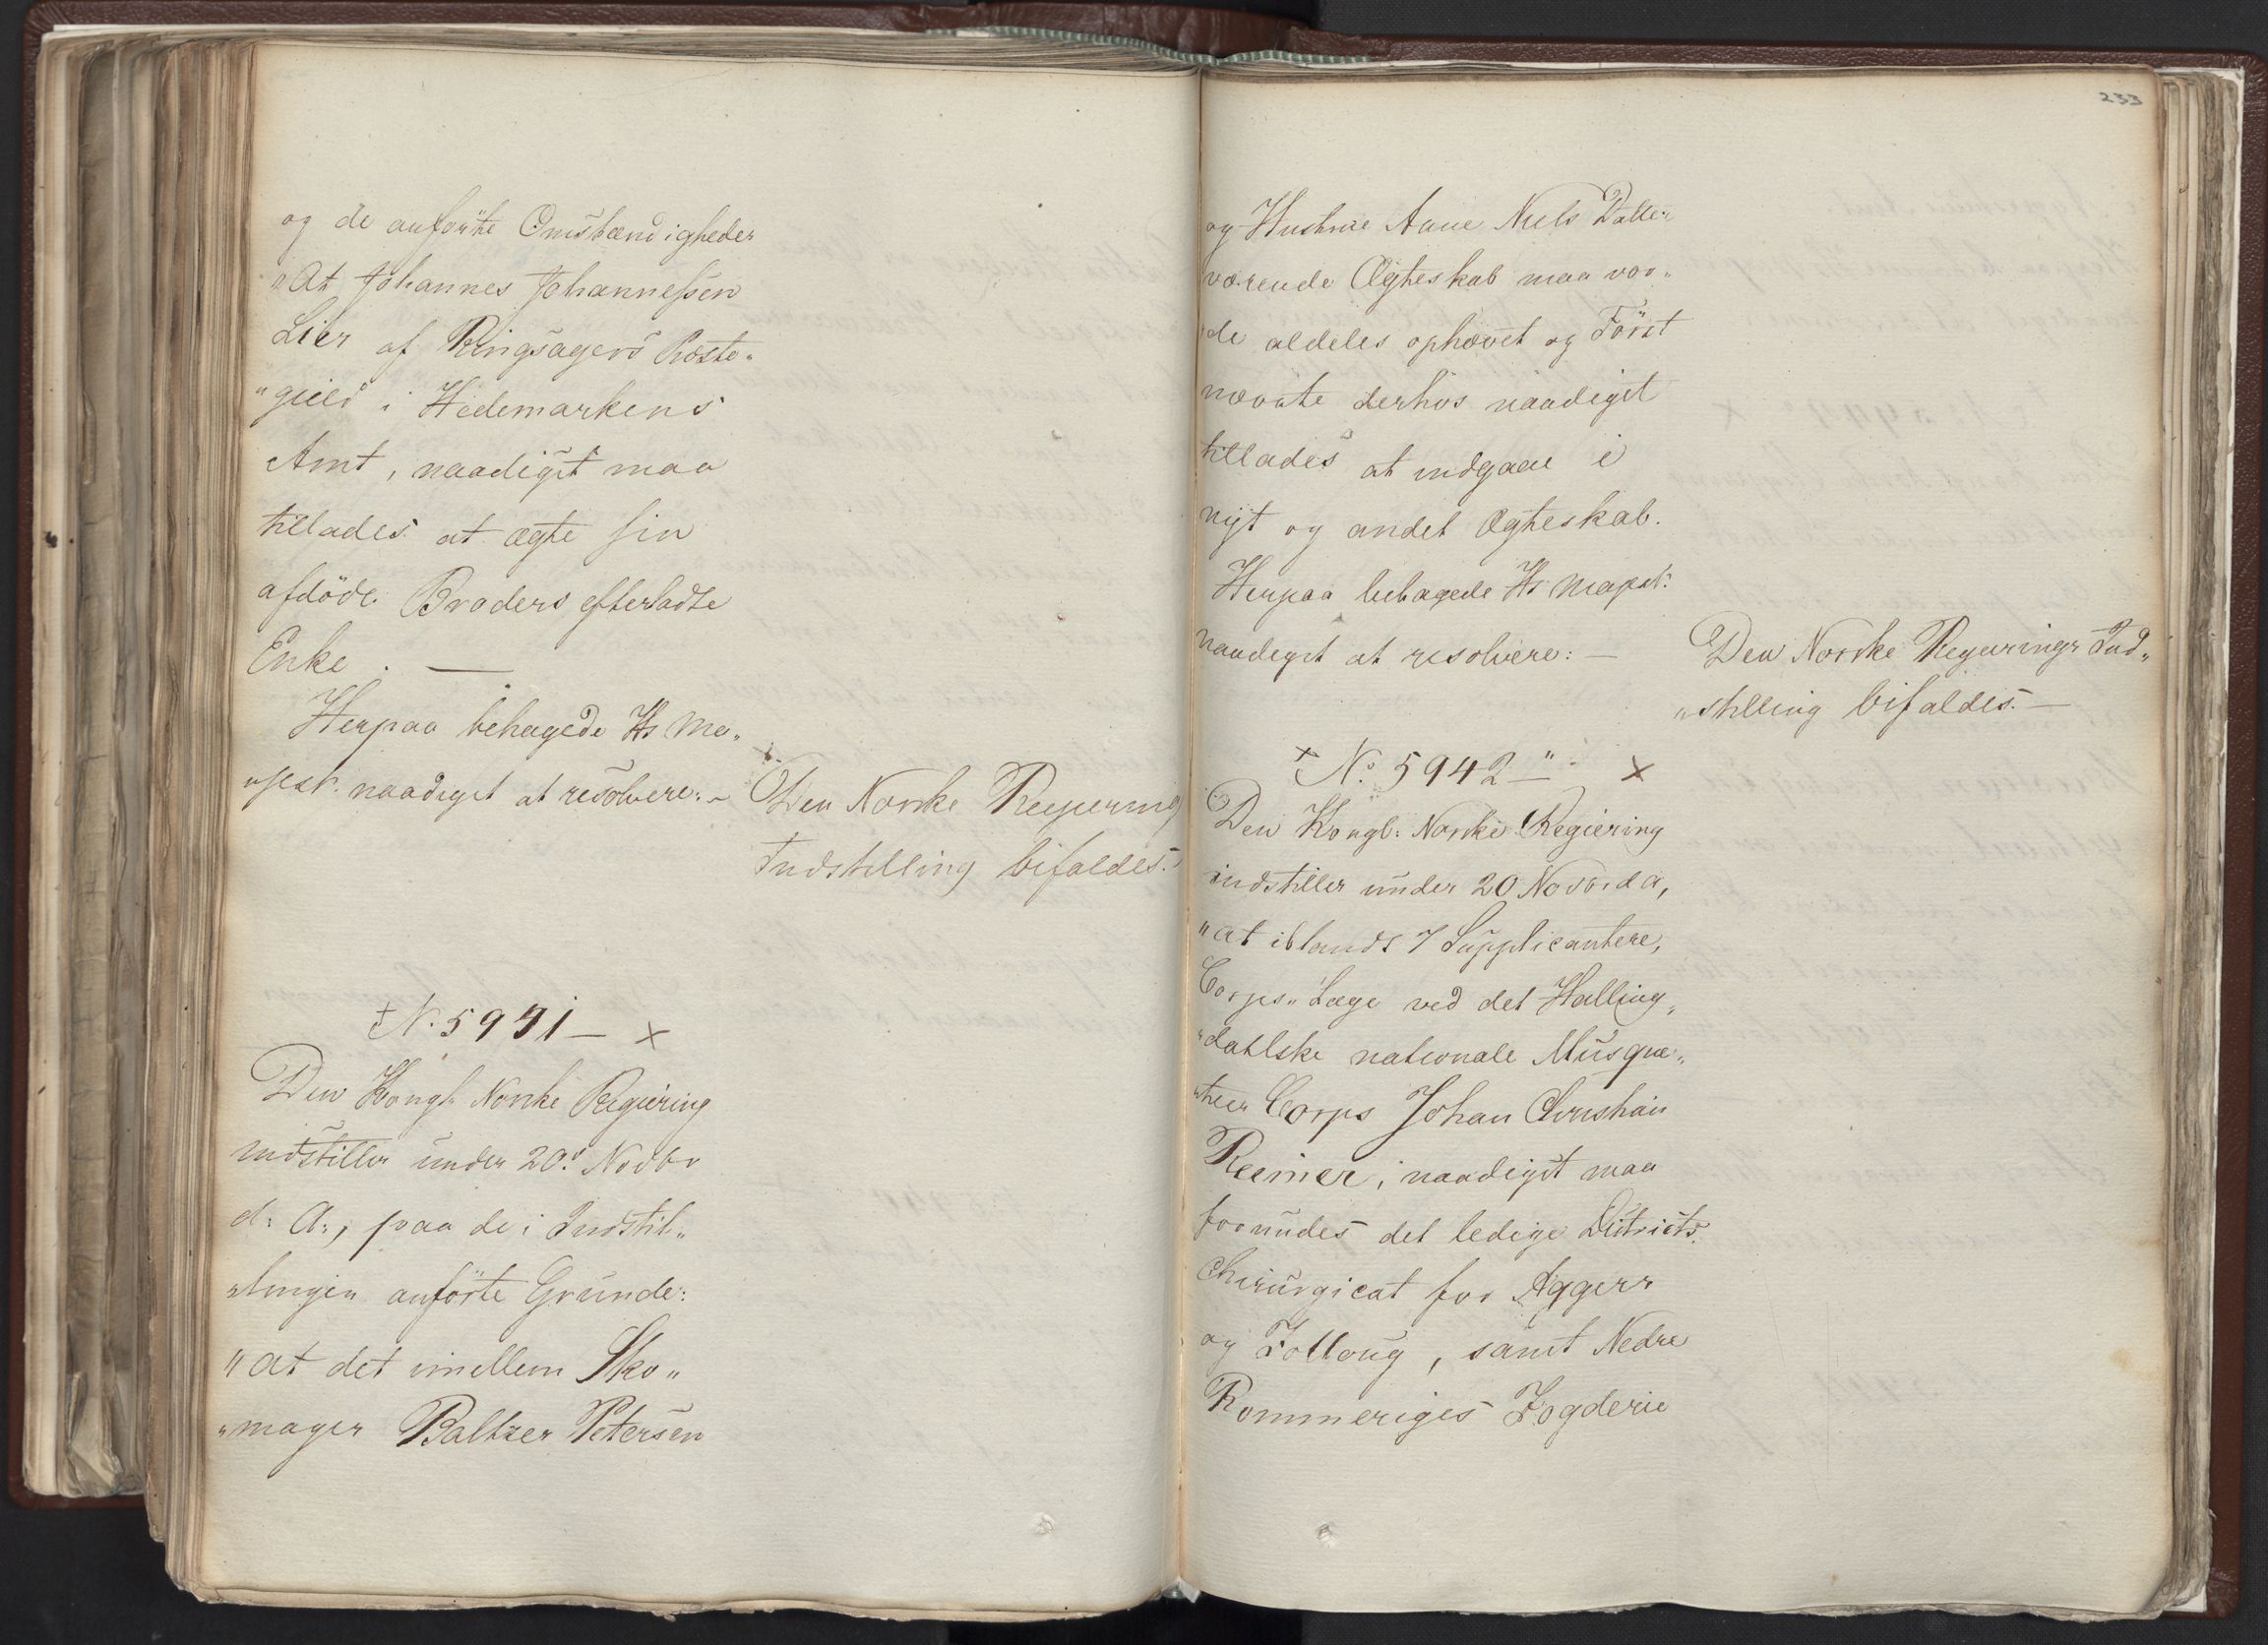 og de anförte Omstændigheder
"At Johannes Johannessen
Lier af Ringsagers Præste"
"gield i Hedemarkens
Amt, naadigst maa
tillades at ægte sin
afdöde Broders efterladte
Enke. —
Herpaa behagede Hs Ma"
"jest: naadigst at resolvere: -
Den Norske Regjering
Indstilling bifaldes. -
† N. 5941 - x
Den Kongl. Norske Regiering
indstiller under 20de Novbr
d: A:, paa de i Indstil"
"lingen anförte Grunde:
"at det imellem Sko"
"mager Baltzer Petersen
233
og Hustrue Anne Niels Datter
værende Ægteskab maa vor"
"de aldeles ophævet og Först
nævnte derhos naadigst
tillades at indgaae i
nyt og andet Ægteskab.
Herpaa behagede Hs Majest:
naadigst at resolvere: —
Den Norske Regjerings Ind"
"stilling bifaldes. —
† No. 5942 -" x
Den Kongl: Norske Regiering
indstiller under 20 Novbr. d A,
"at iblandt 7 Supplicantere,
Corps" Læge ved det Halling"
"dahlske nationale Musque"
"teer Corps Johan Christian
Reimer, naadigst maa
forundes det ledige Districts
Chirurgicat for Aggers
og Folloug, samt Nedre
Rommeriges Fogderie